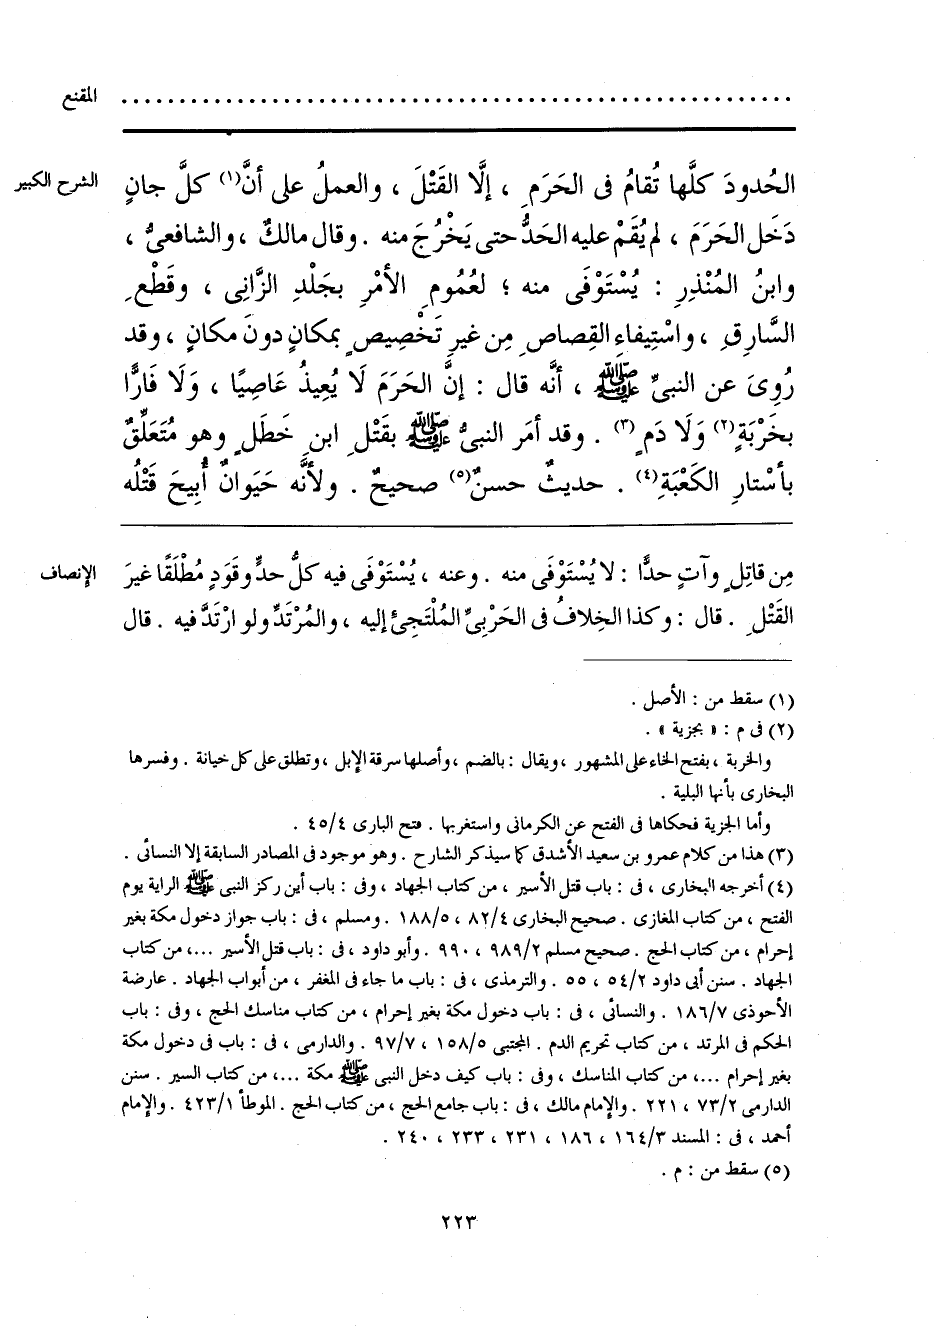 المقنع ......................................................
الشرح الكبير الحُدودَ كلَّها تُقامُ فى الحَرَمِ ، إلَّا القَتْلَ ، والعملُ على أنَّ(١) كلَّ جانٍ
دَخَل الحَرَمَ ، لم يُقَمْ عليه الحَدُّ حتى يَخْرُجَ منه . وقال مالكٌ ، والشافعىُّ ،
وابنُ المُنْذِرِ : يُسْتَوْفَى منه ؛ لعُمُومِ الأمْرِ بجَلْدِ الزَّانِى ، وقَطْعِ
السَّارِقِ ، واسْتِيفاءِ القِصاصِ مِن غيرِ تَخْصِيصٍ بمكانٍ دونَ مكانٍ ، وقد
رُوِىَ عن النبىِّ ﷺ ، أنَّه قال : إنَّ الحَرَمَ لَا يُعِيذُ عَاصِيًا ، وَلَا فَارًّا
بخَرْبَةٍ(٢) وَلَا دَمٍ(٣) . وقد أمَر النبىُّ ﷺ بقَتْلِ ابنِ خَطَلٍ وهو مُتَعَلِّقٌ
بأسْتارِ الكَعْبَةِ(٤) . حديثٌ حسنٌ(٥) صحيحٌ . ولأنَّه حَيَوانٌ أُبِيحَ قَتْلُه
الإنصاف مِن قاتِلٍ وآتٍ حدًّا : لا يُسْتَوْفَى منه . وعنه ، يُسْتَوْفَى فيه كلُّ حدٍّ وقَوَدٍ مُطْلَقًا غيرَ
القَتْلِ . قال : وكذا الخِلافُ فى الحَرْبِىِّ المُلْتَجِئِ إليه ، والمُرْتَدِّ ولو ارْتَدَّ فيه . قال
(١) سقط من : الأصل .
(٢) فى م : « بجزية » .
والخربة ، بفتح الخاء على المشهور ، ويقال : بالضم ، وأصلها سرقة الإبل ، وتطلق على كل خيانة . وفسرها
البخارى بأنها البلية .
وأما الجزية فحكاها فى الفتح عن الكرمانى واستغربها . فتح البارى ٤/ ٤٥ .
(٣) هذا من كلام عمرو بن سعيد الأشدق كما سيذكر الشارح . وهو موجود فى المصادر السابقة إلا النسائى .
(٤) أخرجه البخارى ، فى : باب قتل الأسير ، من كتاب الجهاد ، وفى : باب أين ركز النبى ﷺ الراية يوم
الفتح ، من كتاب المغازى . صحيح البخارى ٤/ ٨٢ ، ٥/ ١٨٨ . ومسلم ، فى : باب جواز دخول مكة بغير
إحرام ، من كتاب الحج . صحيح مسلم ٢/ ٩٨٩ ، ٩٩٠ . وأبو داود ، فى : باب قتل الأسير ... ، من كتاب
الجهاد . سنن أبى داود ٢/ ٥٤ ، ٥٥ . والترمذى ، فى : باب ما جاء فى المغفر ، من أبواب الجهاد . عارضة
الأحوذى ٧/ ١٨٦ . والنسائى ، فى : باب دخول مكة بغير إحرام ، من كتاب مناسك الحج ، وفى : باب
الحكم فى المرتد ، من كتاب تحريم الدم . المجتبى ٥/ ١٥٨ ، ٧/ ٩٧ . والدارمى ، فى : باب فى دخول مكة
بغير إحرام ... ، من كتاب المناسك ، وفى : باب كيف دخل النبى ﷺ مكة ... ، من كتاب السير . سنن
الدارمى ٢/ ٧٣ ، ٢٢١ . والإمام مالك ، فى : باب جامع الحج ، من كتاب الحج . الموطأ ١/ ٤٢٣ . والإمام
أحمد ، فى : المسند ٣/ ١٦٤ ، ١٨٦ ، ٢٣١ ، ٢٣٣ ، ٢٤٠ .
(٥) سقط من : م .
٢٢٣